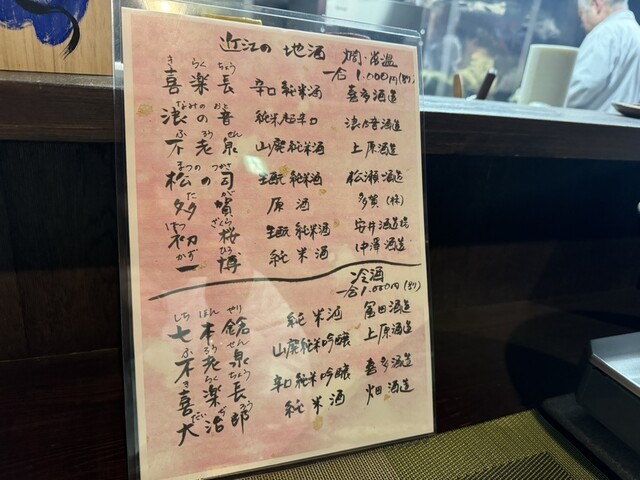 近江の地酒 燗・常温
一合 1,000円(別)
きらくちょう
喜楽長 辛口純米酒 喜多酒造
なみのおと
浪の音 純米超辛口 浪乃音酒造
ふろうせん
不老泉 山廃純米酒 上原酒造
まつのつかさ
松の司 生酛純米酒 松瀬酒造
たが
多賀 原酒 多賀(株)
はつざくら
初桜 生酛純米酒 安井酒造場
かずひろ
一博 純米酒 中澤酒造
冷酒
一合 1,000円(別)
しちほんやり
七本鎗 純米酒 冨田酒造
ふろうせん
不老泉 山廃純米吟醸 上原酒造
きらくちょう
喜楽長 辛口純米吟醸 喜多酒造
だいぢろう
大治郎 純米酒 畑酒造